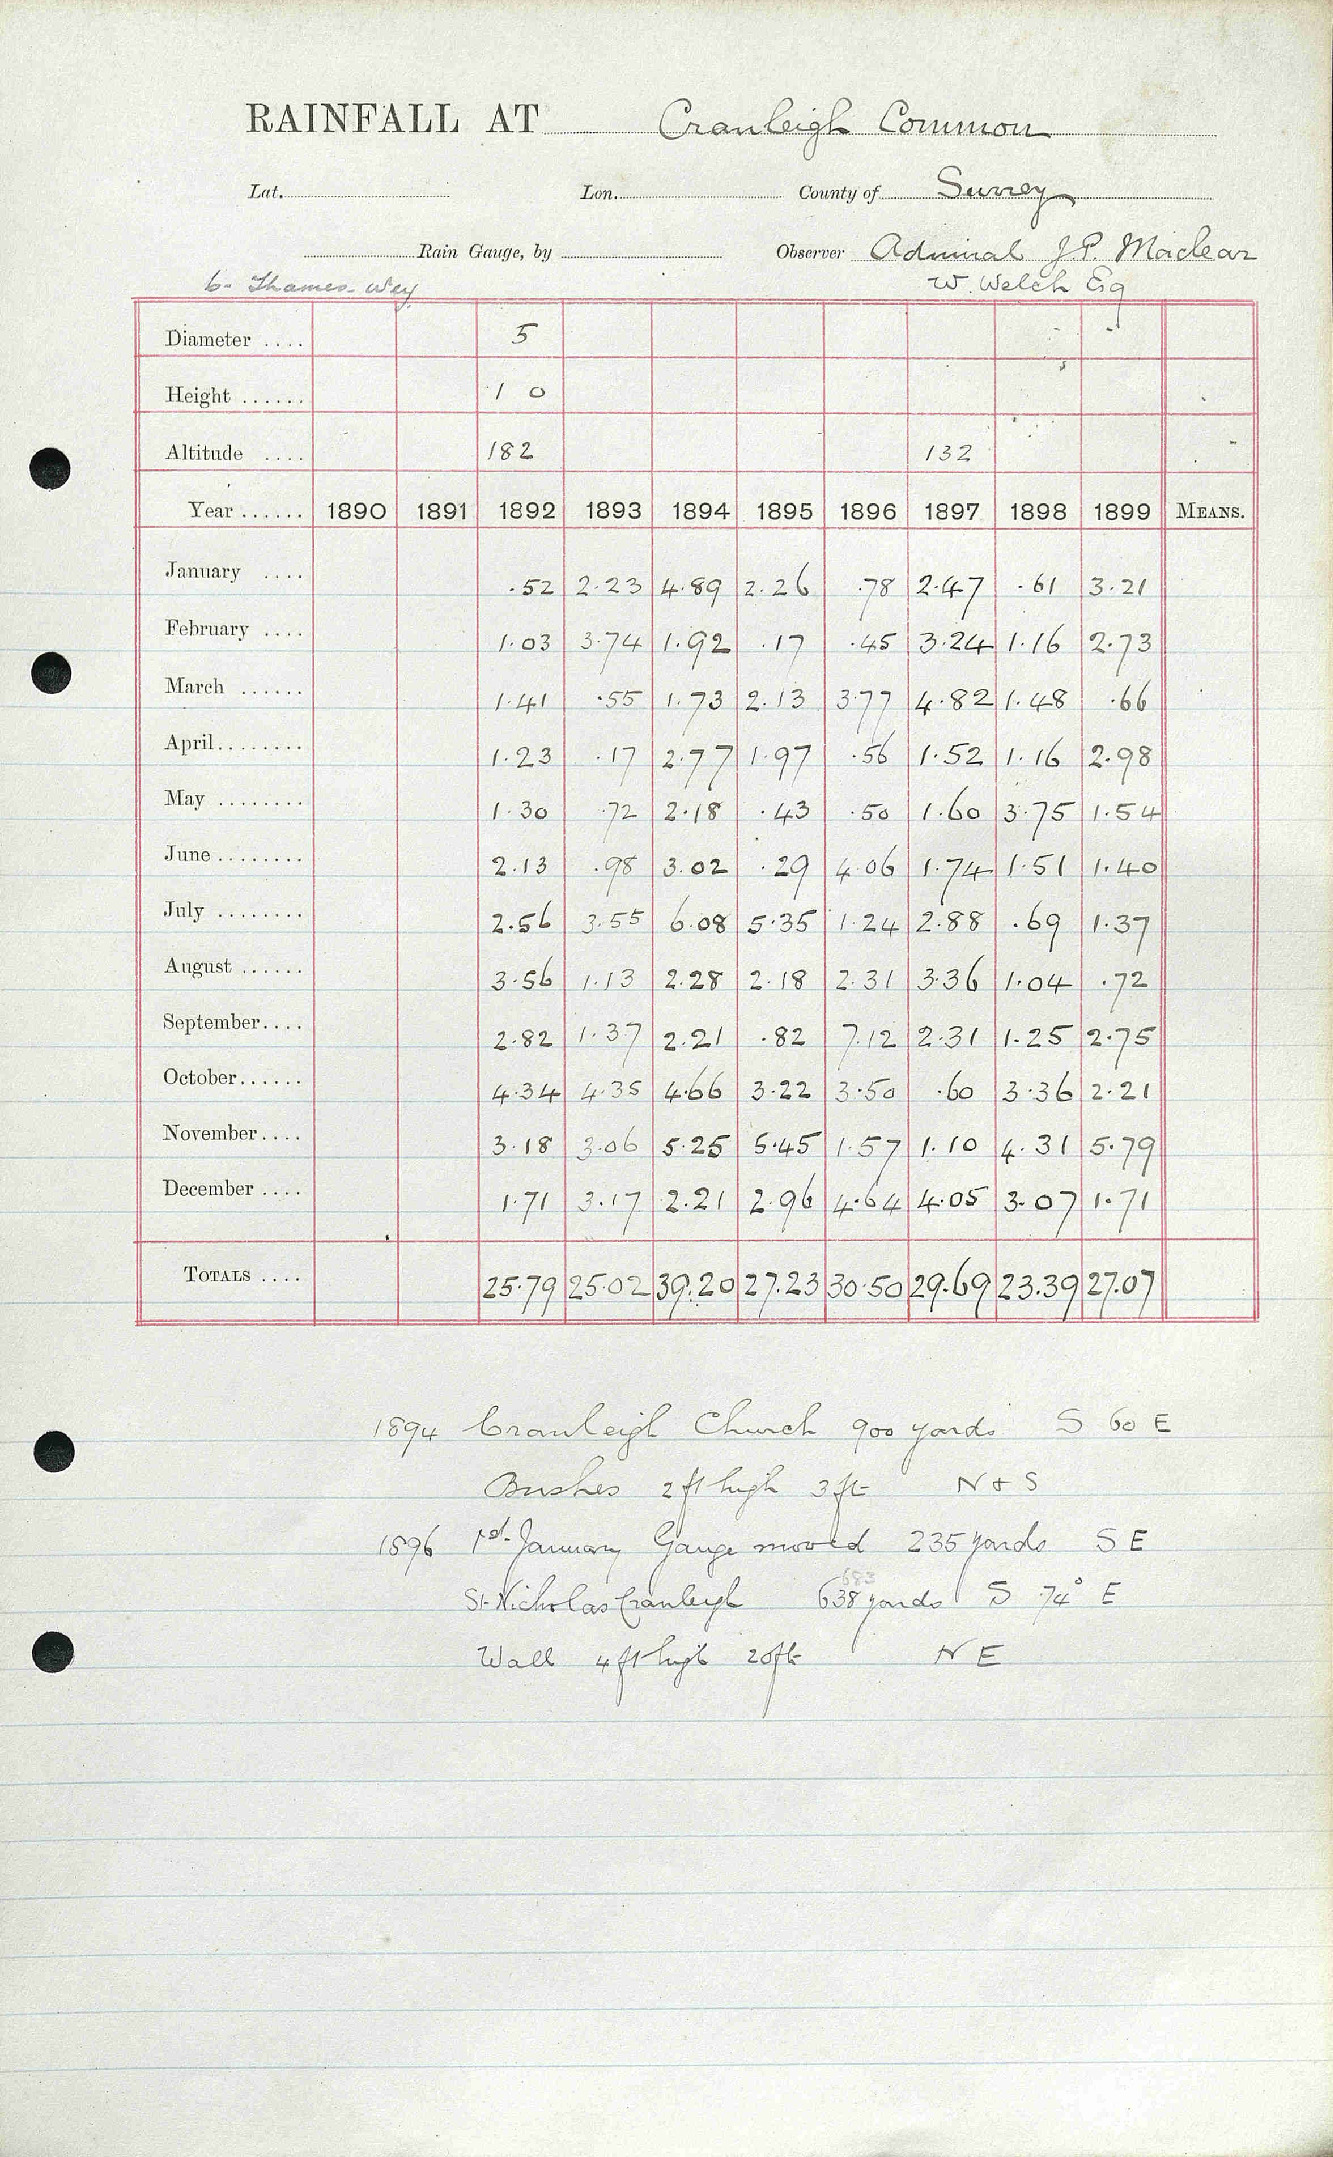 RAINFALL AT Cranleigh Common
Lat. Lon. County of Surrey
Rain Gauge, by Observer Admiral J.P. Maclear
6- Thames-Wey W. Welch Esq
Diameter .... 5
Height ...... 1 0
Altitude .... 182 132
Year ...... 1890 1891 1892 1893 1894 1895 1896 1897 1898 1899 MEANS.
January .... .52 2.23 4.89 2.26 .78 2.47 .61 3.21
February .... 1.03 3.74 1.92 .17 .45 3.24 1.16 2.73
March ...... 1.41 .55 1.73 2.13 3.77 4.82 1.48 .66
April........ 1.23 .17 2.77 1.97 .56 1.52 1.16 2.98
May ........ 1.30 .72 2.18 .43 .50 1.60 3.75 1.54
June........ 2.13 .98 3.02 .29 4.06 1.74 1.51 1.40
July ........ 2.56 3.55 6.08 5.35 1.24 2.88 .69 1.37
August ...... 3.56 1.13 2.28 2.18 2.31 3.36 1.04 .72
September.... 2.82 1.37 2.21 .82 7.12 2.31 1.25 2.75
October...... 4.34 4.35 4.66 3.22 3.50 .60 3.36 2.21
November.... 3.18 3.06 5.25 5.45 1.57 1.10 4.31 5.79
December .... 1.71 3.17 2.21 2.96 4.64 4.05 3.07 1.71
TOTALS .... 25.79 25.02 39.20 27.23 30.50 29.69 23.39 27.07
1894 Cranleigh Church 900 yards S 60 E
Bushes 2 ft high 3 ft N & S
1896 1st January Gauge moved 235 yards S E
683
St Nicholas Cranleigh 638 yards S 74° E
Wall 4 ft high 20 ft N E